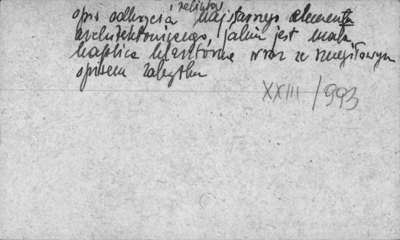 i reliktów
opis odkrycia najstarszego elementu
architektonicznego, jakim jest mała
kaplica wraz ze szczegółowym
opisem zabytku
XXIII/993